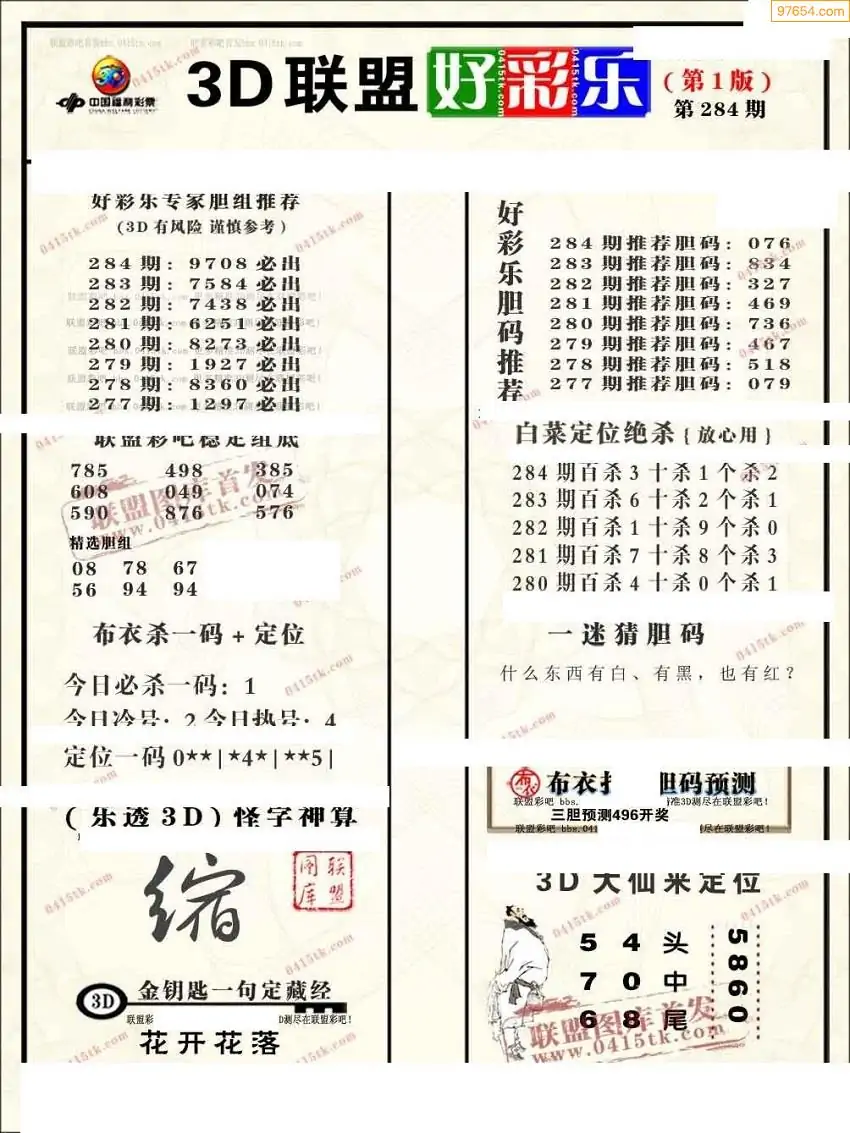 97654.com
3D联盟好彩乐
(第1版)
第284期
中国福利彩票
CHINA WELFARE LOTTERY
好彩乐专家胆组推荐
(3D有风险 谨慎参考)
284期：9708必出
283期：7584必出
282期：7438必出
281期：6251必出
280期：8273必出
279期：1927必出
278期：8360必出
277期：1297必出
联盟彩吧稳定组底
785 498 385
608 049 074
590 876 576
精选胆组
08 78 67
56 94 94
布衣杀一码+定位
今日必杀一码：1
今日冷号：2 今日热号：4
定位一码0**|*4*|**5|
(乐透3D)怪字神算
缩
联盟图库
3D
金钥匙一句定藏经
联盟彩
D测尽在联盟彩吧!
花开花落
好彩乐胆码推荐
284期推荐胆码：076
283期推荐胆码：834
282期推荐胆码：327
281期推荐胆码：469
280期推荐胆码：736
279期推荐胆码：467
278期推荐胆码：518
277期推荐胆码：079
白菜定位绝杀{放心用}
284期百杀3十杀1个杀2
283期百杀6十杀2个杀1
282期百杀1十杀9个杀0
281期百杀7十杀8个杀3
280期百杀4十杀0个杀1
一迷猜胆码
什么东西有白、有黑，也有红？
布衣
胆码预测
联盟彩吧 bbs.
准3D测尽在联盟彩吧!
三胆预测496开奖
联盟彩吧 bbs.041
尽在联盟彩吧!
3D大仙来定位
5 4 头
7 0 中
6 8 尾
5860
联盟图库首发
www.0415tk.com
联盟图库首发
www.0415tk.com
0415tk.com